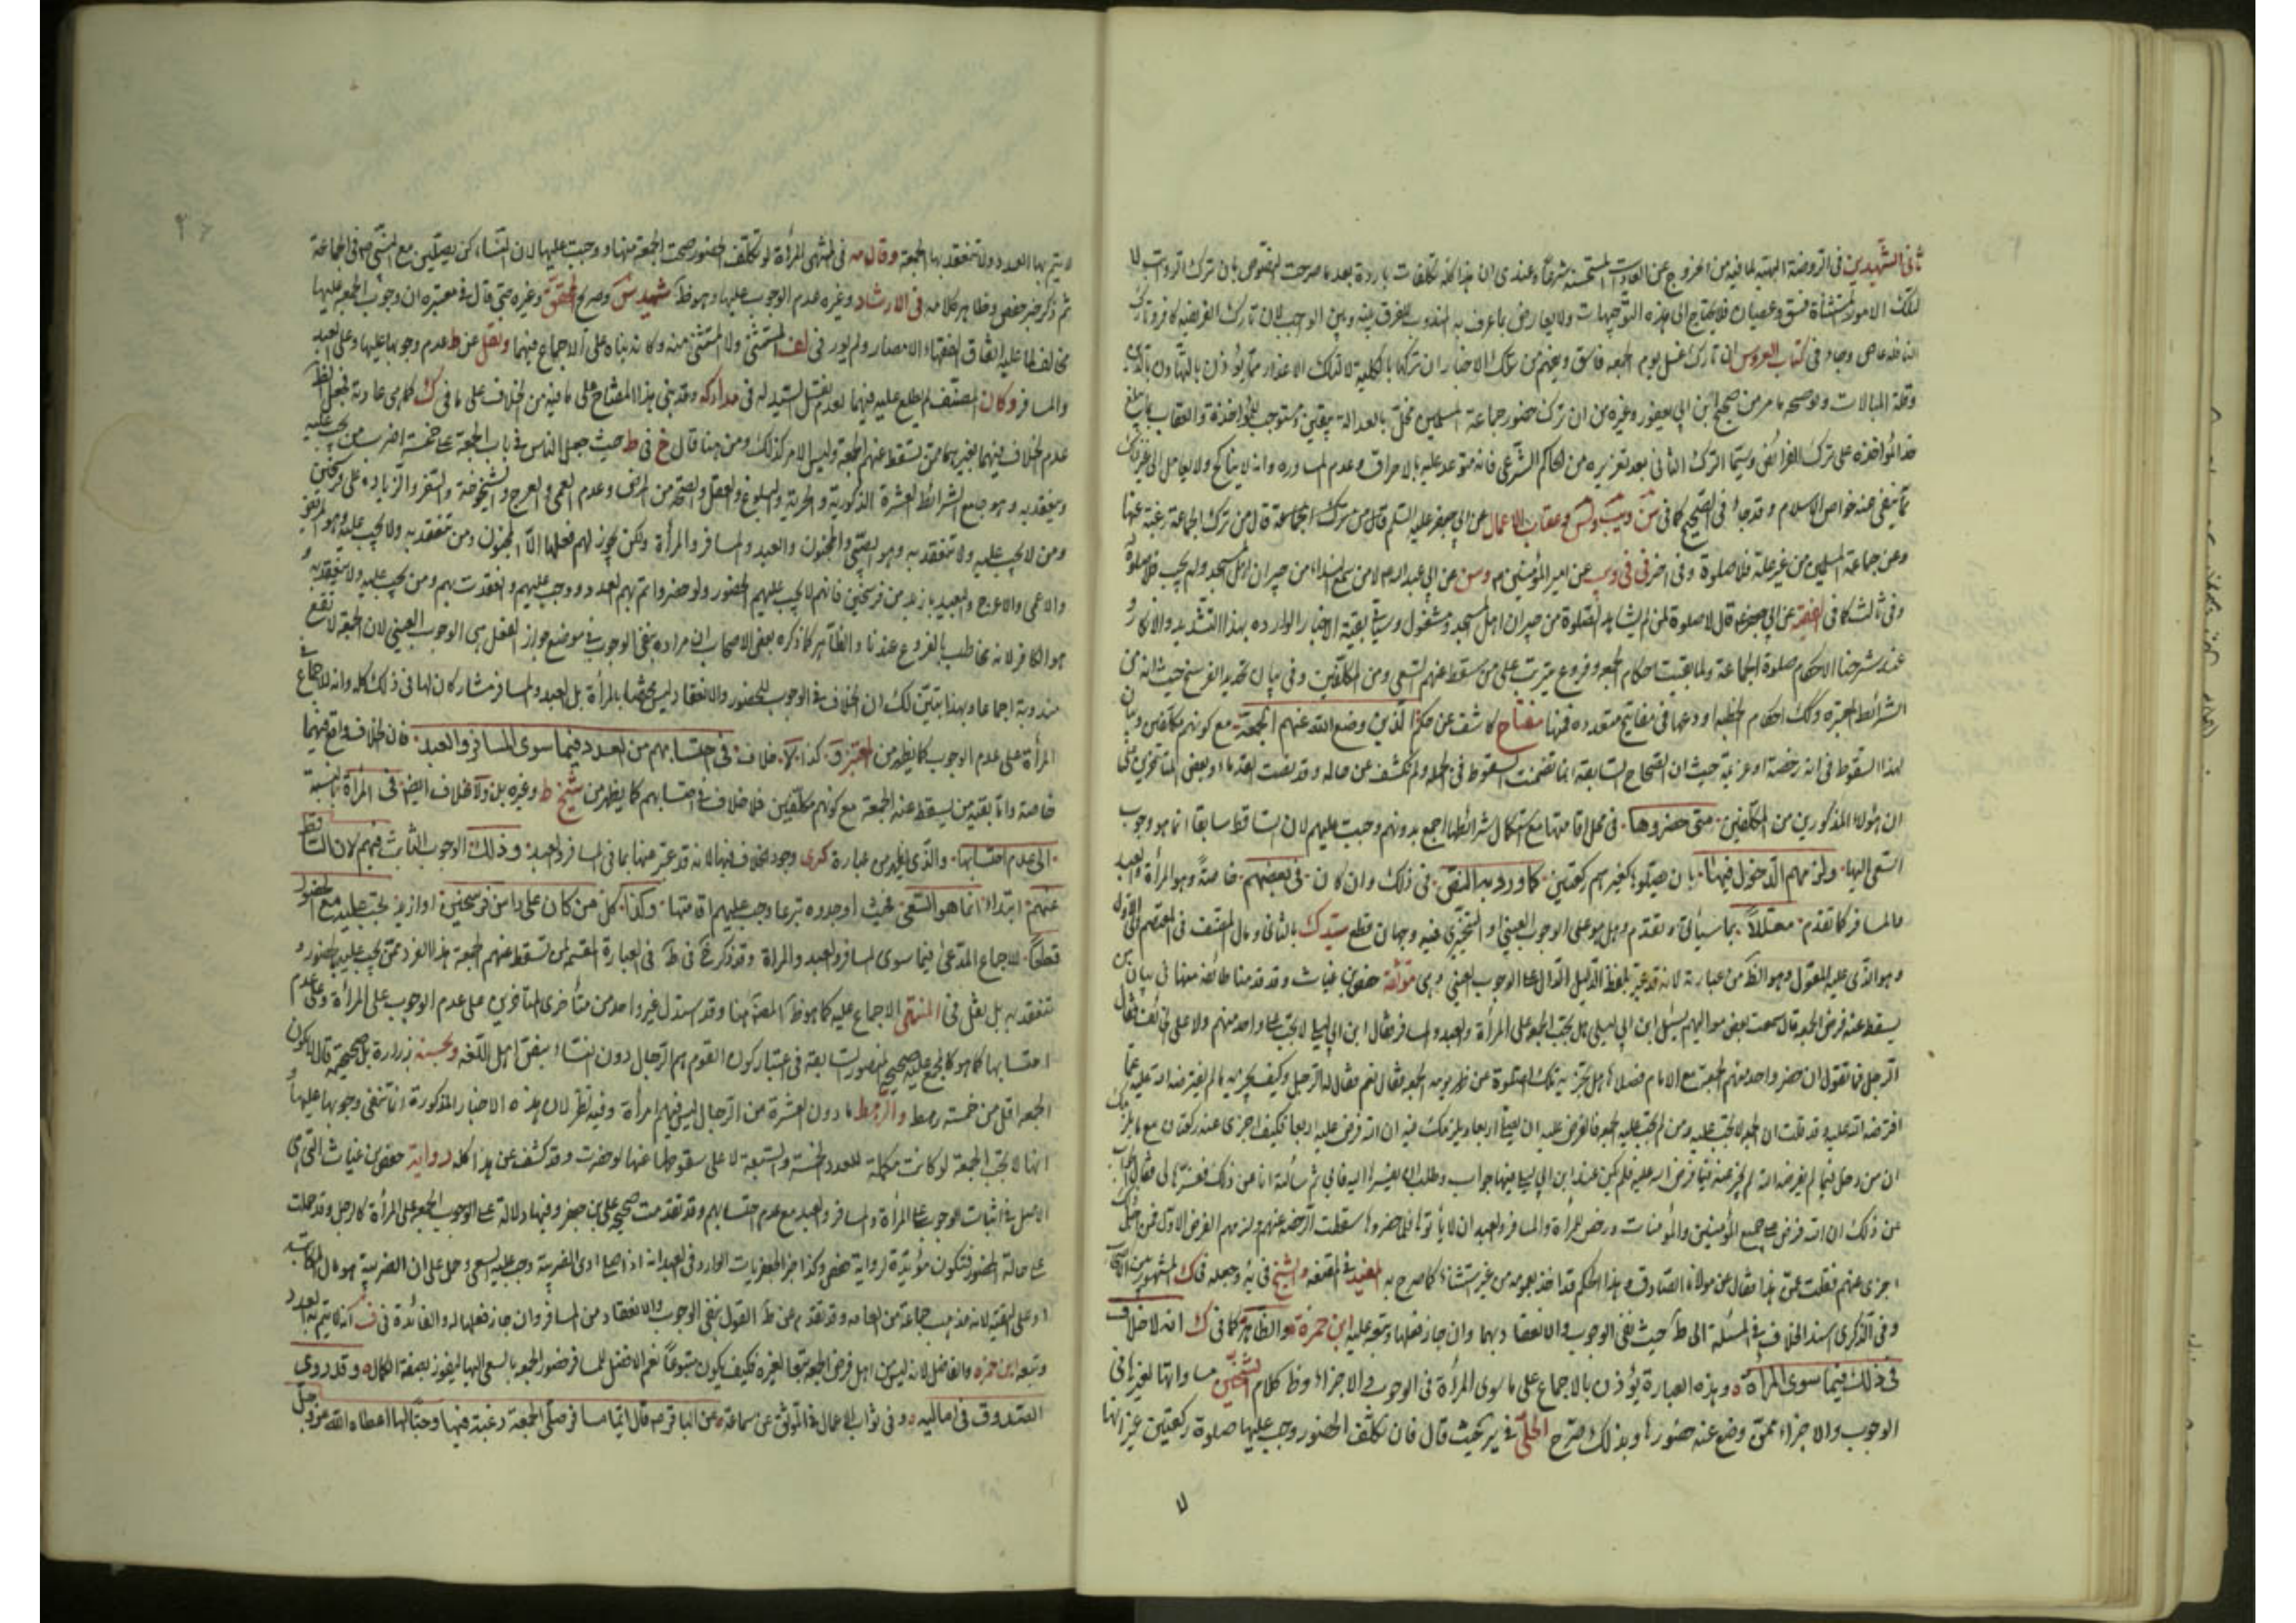 ثانى الشهيدين فى الروضة البهية لما فيه من الخروج عن العادات المستحسنة شرعا وعندى ان هذا كله تكلفات باردة بعد ما صرحت النصوص بان ترك الرواتب لا
لتلك الامور المستثناة فسق وعصيان فلا يحتاج الى هذه التوجيهات ولا يعارض ما عرف به المندوب للفرق بينه وبين الواجب لان تارك الفريضة كافر وتارك
النافلة عاص وجاء فى كتاب العروس ان تارك غسل يوم الجمعة فاسق من تلك الاخبار ان تركها بالكلية لا لتلك الاعذار مما يؤذن بالتهاون بالدين
وقلة المبالات ولوضحه ما مر من صحيح ابن ابى يعفور وغيره من ان ترك حضور جماعة المسلمين مخل بالعدالة بيقين ومستوجب للمؤاخذة والعقاب
المؤاخذة على ترك الفرائض وسيما الترك الثانى بعد تعزيره من الحاكم الشرعى فانه متوعد عليه بالاحراق وعدم المساورة وانه لا يناكح ولا يعامل الى غير ذلك
مما ينفى عنه خواص الاسلام وقد جاء فى الصحيح كما فى وعقاب الاعمال عن ابى جعفر عليه السلم قال من ترك الجماعة رغبة عنها
وعن جماعة المسلمين من غير علة فلا صلوة وفى اخر عن امير المؤمنين عن ابى عبد الله لا من سمع النداء من جيران المسجد ولم يجب فلا صلوة له
وفى ثالث كما فى الفقيه عن ابى جعفر قال لا صلوة لمن لم يشهد الصلوة من جيران المسجد مشغول وسياتى بقية الاخبار الواردة بهذا التشديد والانكار
عند شرحنا لاحكام صلوة الجماعة ولما بقيت احكام الجمعة وفروع مترتب على من سقط عنهم السعى من المكلفين وفى بيان تحديد الفرسخ
الشرائط المعتبرة وكذلك احكام الخطبة اودعها فى مفاتيح متعددة فمنها مفتاح كاشف عن حكم الذين وضع الله عنهم الجمعة مع كونهم مكلفين وبيان
لهذا السقوط فى انه رخصة او عزيمة حيث ان الصحاح السابقة انما تضمنت السقوط فى الجملة ولم تكشف عن حاله
ان هؤلاء المذكورين من المكلفين متى حضروها فى محل اقامتها مع استكمال شرائطها اجمع بدونهم وجبت عليهم لان الساقط سابقا انما هو وجوب
السعى اليها ولزمهم الدخول فيها بان يصلوا كغيرهم ركعتين كما ورد به النص فى ذلك وان كان فى بعضهم خاصة وهو المرأة والعبد
والمسافر كما تقدم معللا بما سيأتى وتقدم وهل هو على الوجوب العينى او التخييرى فيه وجهان قطع سيد ك بالثانى ومال المصنف فى المعتصم الى الاول
وهو الذى عليه المعول وهو الظ من عبارته لانه قد عبر بلفظ الدليل الدال على الوجوب العينى وهى موثقة حفص بن غياث وقد قدمنا طائفة منها فى بيان من
يسقط عنه فرض الجمعة قال سمعت بعض مواليهم يسئل ابن ابى ليلى هل تجب الجمعة على المرأة والعبد والمسافر فقال ابن ابى ليلى لا تجب على واحد منهم ولا على الخائف فقال
الرجل فما تقول ان حضر واحد منهم الجمعة مع الامام فصلاها هل تجزيه تلك الصلوة عن ظهر يومه الجمعة فقال نعم فقال له الرجل وكيف يجزيه ما لم يفرضه الله عليه عما
افترضه الله عليه وقد قلت ان الجمعة لا تجب عليه ومن لم تجب عليه الجمعة فالفرض عليه ان يصلى اربعا ويلزمك فيه ان الله فرض عليه اربعا فكيف اجزى عنه ركعتان مع ما يلزمك
ان من دخل فيما لم يفرضه الله لم يجز عنه مما فرض الله عليه فلم يكن عند ابن ابى ليلى فيها جواب وطلب اليه ان يفسرها اليه فابى ثم سألته انا عن ذلك ففسرها لى فقال الجواب
عن ذلك ان الله فرض على جميع المؤمنين والمؤمنات ورخص للمرأة والمسافر والعبد ان لا يأتوها فلما حضروا سقطت الرخصة عنهم ولزمهم الفرض الاول فمن اجل ذلك
اجزى عنهم فقلت عمن هذا فقال عن مولانا الصادق وهذا الحكم قد اخذ بعمومه من غير استثناء كما صرح به المفيد فى المقنعة والشيخ فى ية وجعله فى ك المشهور
وفى الذكرى اسند الخلاف فى المسئلة الى ط حيث نفى الوجوب والانعقاد بهما وان جاز فعلها وتبعه عليه ابن حمزة والظاهر كما فى ك انه لا خلاف
فى ذلك فيما سوى المرأة وهذه العبارة يؤذن بالاجماع على ما سوى المرأة فى الوجوب والاجزاء وظ كلام الشيخين مساواتها لغيرها فى
الوجوب والاجزاء ممن وضع عنه حضورها وبذلك صرح الحلى فى ير حيث قال فان تكلفت الحضور وجب عليها صلوة ركعتين غير انها
لا يتم بها العدد ولا تنعقد بها الجمعة وقال مه فى المنتهى المرأة لو تكلفت الحضور صحت الجمعة منها ووجبت عليها لان النساء كن يصلين مع النبى ص فى الجماعة
ثم ذكر خبر حفص وظاهر كلامه فى الارشاد وغيره عدم الوجوب عليها وهو ظ شهيد س وصريح المحقق وغيره حتى قال فى معتبره ان وجوب الجمعة عليها
مخالف لما عليه اتفاق الفقهاء الامصار ولم يورد فى لف المستثنى ولا المستثنى منه وكانه بناه على الاجماع فيهما ونقل عن ط عدم وجوبها عليها وعلى العبد
والمسافر وكان المصنف لم يطلع عليه فيهما لعدم نقل السيد له فى مداركه وقد بنى هذا المفتاح على ما فيه من الخلاف على ما فى ك كما هى عادته فجعل الظ
عدم الخلاف فيهما بغيرهما ممن تسقط عنهم الجمعة وليس الامر كذلك ومن هنا قال خ فى ط حيث جعل الناس فى باب الجمعة على خمسة اضرب من يجب عليه
وينعقد به وهو جامع الشرائط العشرة الذكورية والحرية والبلوغ والعقل والصحة من المرض وعدم العمى والعرج والشيخوخة والسفر والزيادة على فرسخين
ومن لا يجب عليه ولا تنعقد به وهو الصبى والمجنون والعبد والمسافر والمرأة ولكن يجوز لهم فعلها الا المجنون ومن تنعقد به ولا يجب عليه وهو المريض
والاعمى والاعرج والبعيد بازيد من فرسخين فانهم لا يجب عليهم الحضور ولو حضروا تم بهم العدد ووجب عليهم وانعقدت بهم ومن يجب عليه ولا ينعقد به و
هو الكافر لانه مخاطب بالفروع عندنا والظاهر كما ذكره بعض الاصحاب ان مراده بنفى الوجوب فى موضع جواز الفعل هى الوجوب العينى لان الجمعة لا تقع
مندوبة اجماعا وبهذا يتبين لك ان الخلاف فى الوجوب للحضور والانعقاد ليس مختصا بالمرأة بل العبد والمسافر مشاركان لها فى ذلك كله وانه لا اجماع فى
المرأة على عدم الوجوب كما يظهر من المعتبر وكذا لا خلاف فى احتسابهم من العدد فيما سوى المسافر والعبد فان الخلاف واقع فيهما
خاصة واما بقية من يسقط عنه الجمعة مع كونهم مكلفين فلا خلاف فى احتسابهم كما يظهر من شيخ ط وغيره بل ولا خلاف ايضا فى المرأة بالنسبة
الى عدم احتسابها والذى يظهر من عبارة كرى وجود الخلاف فيها لانه قد عبر عنها بما فى المسافر والعبد وذلك الوجوب الثابت فيهم لان الساقط
عنهم ابتداء انما هو السعى بحيث اوجدوه تبرعا وجب عليهم اقامتها وكذا كل من كان على راس فرسخين او ازيد يجب عليه مع الحضور
قطعا للاجماع المدعى فيما سوى المسافر والعبد والمرأة وقد ذكر خ فى ط فى العبارة المقسم لمن تسقط عنهم الجمعة هذا الفرد ممن يجب عليه بالحضور و
تنعقد به بل نقل فى المنتهى الاجماع عليه كما هو ظ المصن هنا وقد استدل غير واحد من متأخرى المتأخرين على عدم الوجوب على المرأة وعلى عدم
احتسابها كما هو المجمع عليه بصحيح منصور السابقة فى اعتبار كون القوم هم الرجال دون النساء بنص اهل اللغة وبحسنة زرارة بل صحيحة قال لا تكون
الجمعة اقل من خمسة رهط والرهط ما دون العشرة من الرجال ليس فيهم امرأة وفيه نظر لان هذه الاخبار المذكورة انما تنفى وجوبها عليها و
انها لا تجب الجمعة لو كانت مكملة للعدد الخمسة والسبعة لا على سقوطها عنها لو حضرت وقد كشف عن هذا كله رواية حفص بن غياث التى هى
الاصل فى اثبات الوجوب على المرأة والمسافر والعبد مع عدم احتسابهم وقد تقدمت صحيح على بن جعفر وفيها دلالة على الوجوب الجمعة على المرأة كالرجل وقد حملت
على حالة الحضور فتكون مؤيدة لرواية حفص وكذا خبر الجعفريات الوارد فى العبد انه اذا ادى الضريبة وجب عليه السعى وحمل على ان الضريبة هو مال المكاتبة
او على التقية لانه مذهب جماعة من العامة وقد تقدم عن ط القول بنفى الوجوب والانعقاد من المسافر وان جاز فعلها له والفائدة فى انه لا يتم به العدد
وتبعه ابن حمزه والفاضل لانه ليس من اهل فرض الجمعة تبعا لغيره فكيف يكون متبوعا نعم الافضل للمسافر حضور الجمعة بالسعى اليها ليفوز بصفة الكمال وقد روى
الصدوق فى اماليه وفى ثواب الاعمال فى الموثق عن سماعة عن الباقر ع قال ايما مسافر صلى الجمعة رغبة فيها وحبا لها اعطاه الله عز وجل